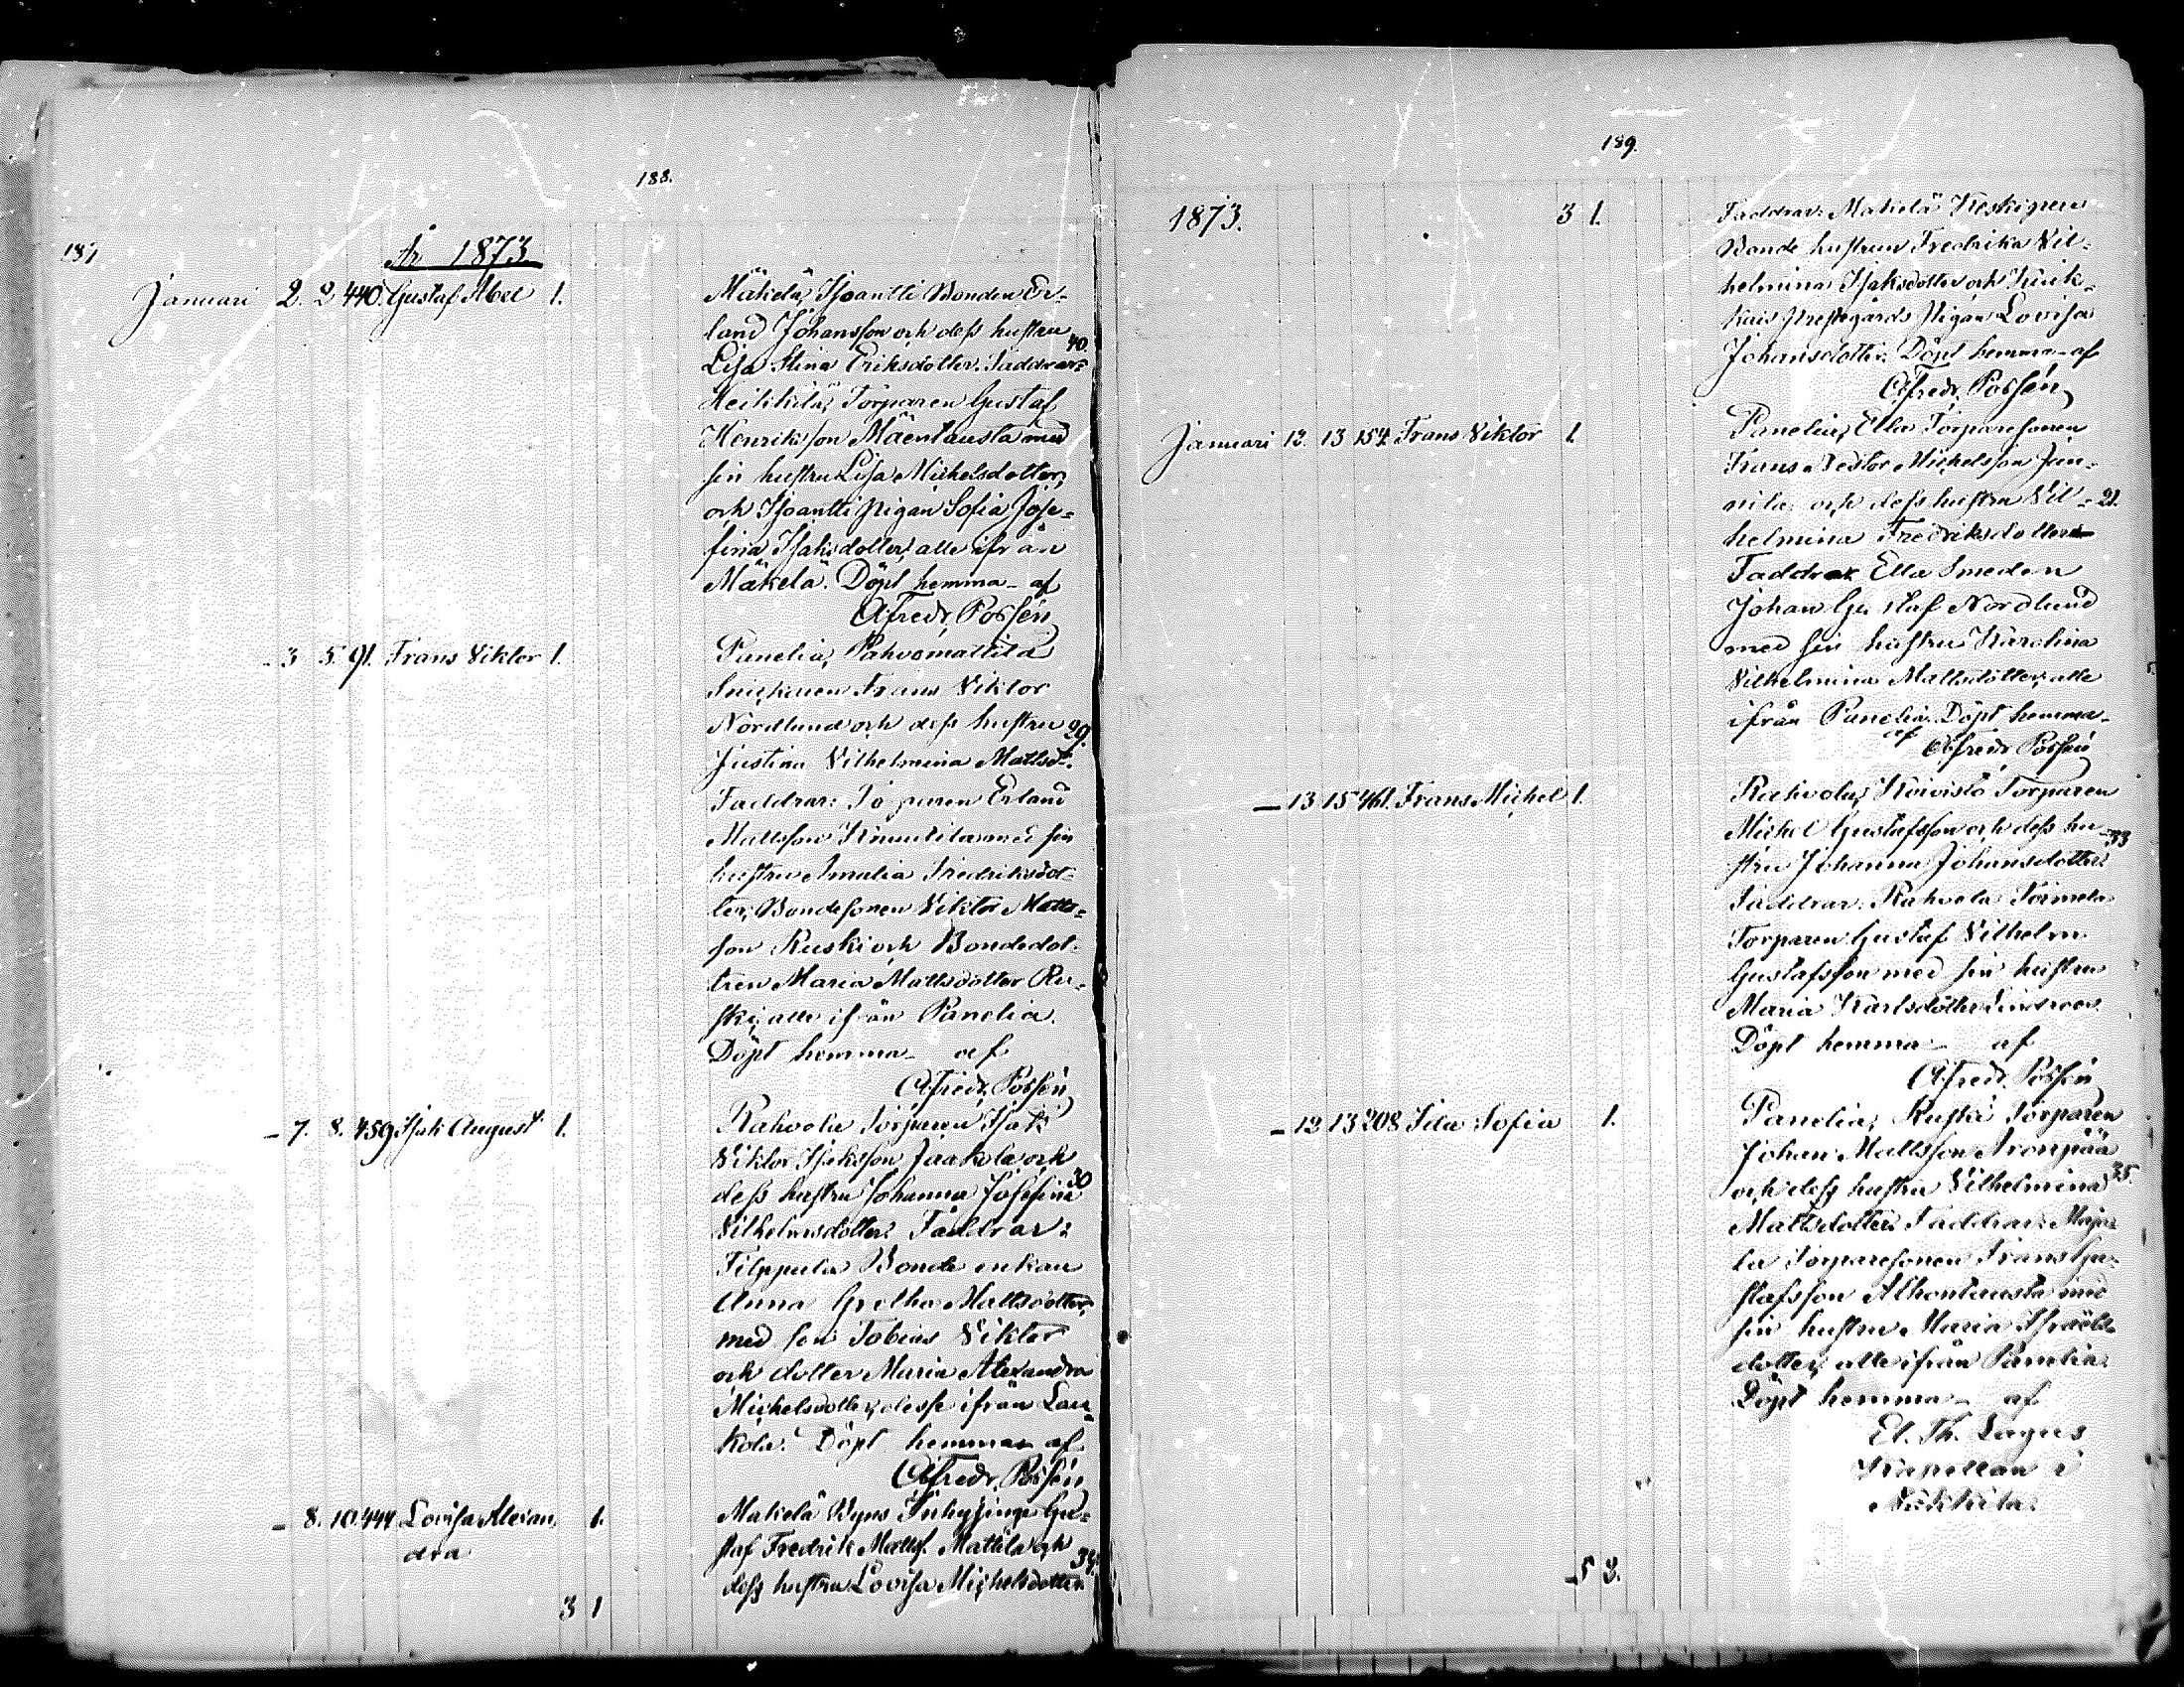 188.
187
År 1873.
Januari 2. 2 440. Gustaf Abel 1.
Mäkelä, Isoantti Bonden Er-
land Johansson och dess hustru 40.
Lisa Stina Eriksdotter. Faddrar:
Heikkilä, Torparen Gustaf
Henriksson Mäentausta med
sin hustru Lisa Michelsdotter,
och Isoantti pigan Sofia Jose-
fina Isaksdotter, alle ifrån
Mäkelä. Döpt hemma - af
Alfred. Possén
- 3 5. 91. Frans Viktor 1.
Panelia, Pahvomattila
Snickaren Frans Viktor
Nordlund och dess hustru 29.
Justina Vilhelmina Mattsd:r
Faddrar: Torparen Erland
Mattsson Knuutila med sin
hustru Amalia Fredriksdot-
ter, Bondesonen Viktor Matts-
son Ruski och Bondedot-
tren Maria Mattsdotter Ru-
ski, alle ifrån Panelia.
Döpt hemma - af
Alfred. Possén
- 7. 8. 459 Isak August 1.
Rahvola Torparen Isak
Viktor Isaksson Jaakola och
dess hustru Johanna Josefina 30
Vilhelmsdotter. Faddrar:
Filppula Bonde enkan
Anna Gretha Mattsdotter,
med son Tobias Viktor
och dotter Maria Alexandra
Michelsdotter, desse ifrån Lau-
kola. Döpt hemma af
Alfred. Possén
- 8. 10. 444 Lovisa Alexan- 1.
dra
Mäkelä Byns Inhysinge Gu-
staf Fredrik Mattss. Mattila och
dess hustru Lovisa Michelsdotter
3 1
189.
1873. 3 1.
Faddrar: Mäkelä
Bonde hustrun Fredrika Vil-
helmina Isaksdotter och Kiuk-
kais Prestgårds Pigan Lovisa
Johansdotter. Döpt hemma - af
Alfred. Possén
Januari 12. 13 154. Frans Viktor 1.
Panelia, Ella Torparesonen
Frans Nestor Michelsson Jun-
nila och dess hustru Vil- 21.
helmina Fredriksdotter
Faddrar Ella Smeden
Johan Gustaf Nordlund
med sin hustru Karolina
Vilhelmina Mattsdotter, alle
ifrån Panelia. Döpt hemma -
af Alfred. Possén
- 13 15 461. Frans Michel 1.
Rahvola, Koivisto Torparen
Michel Gustafsson och dess hu- 33
stru Johanna Johansdotter.
Faddrar: Rahvola
Torparen Gustaf Vilhelm
Gustafsson med sin hustru
Maria Karlsdotter Lindroos.
Döpt hemma - af
Alfred. Possén
- 12 13 208 Ida Sofia 1.
Panelia, Ruski Torparen
Johan Mattsson Aronpää
och dess hustru Vilhelmina 35.
Mattsdotter. Faddrar: Maju-
la Torparesonen Frans Gu-
stafsson Alhontausta med
sin hustru Maria Israels-
dotter, alle ifrån Panelia.
Döpt hemma - af
El. Th. Lagus
Kapellan i
Nakkila.
5 3.